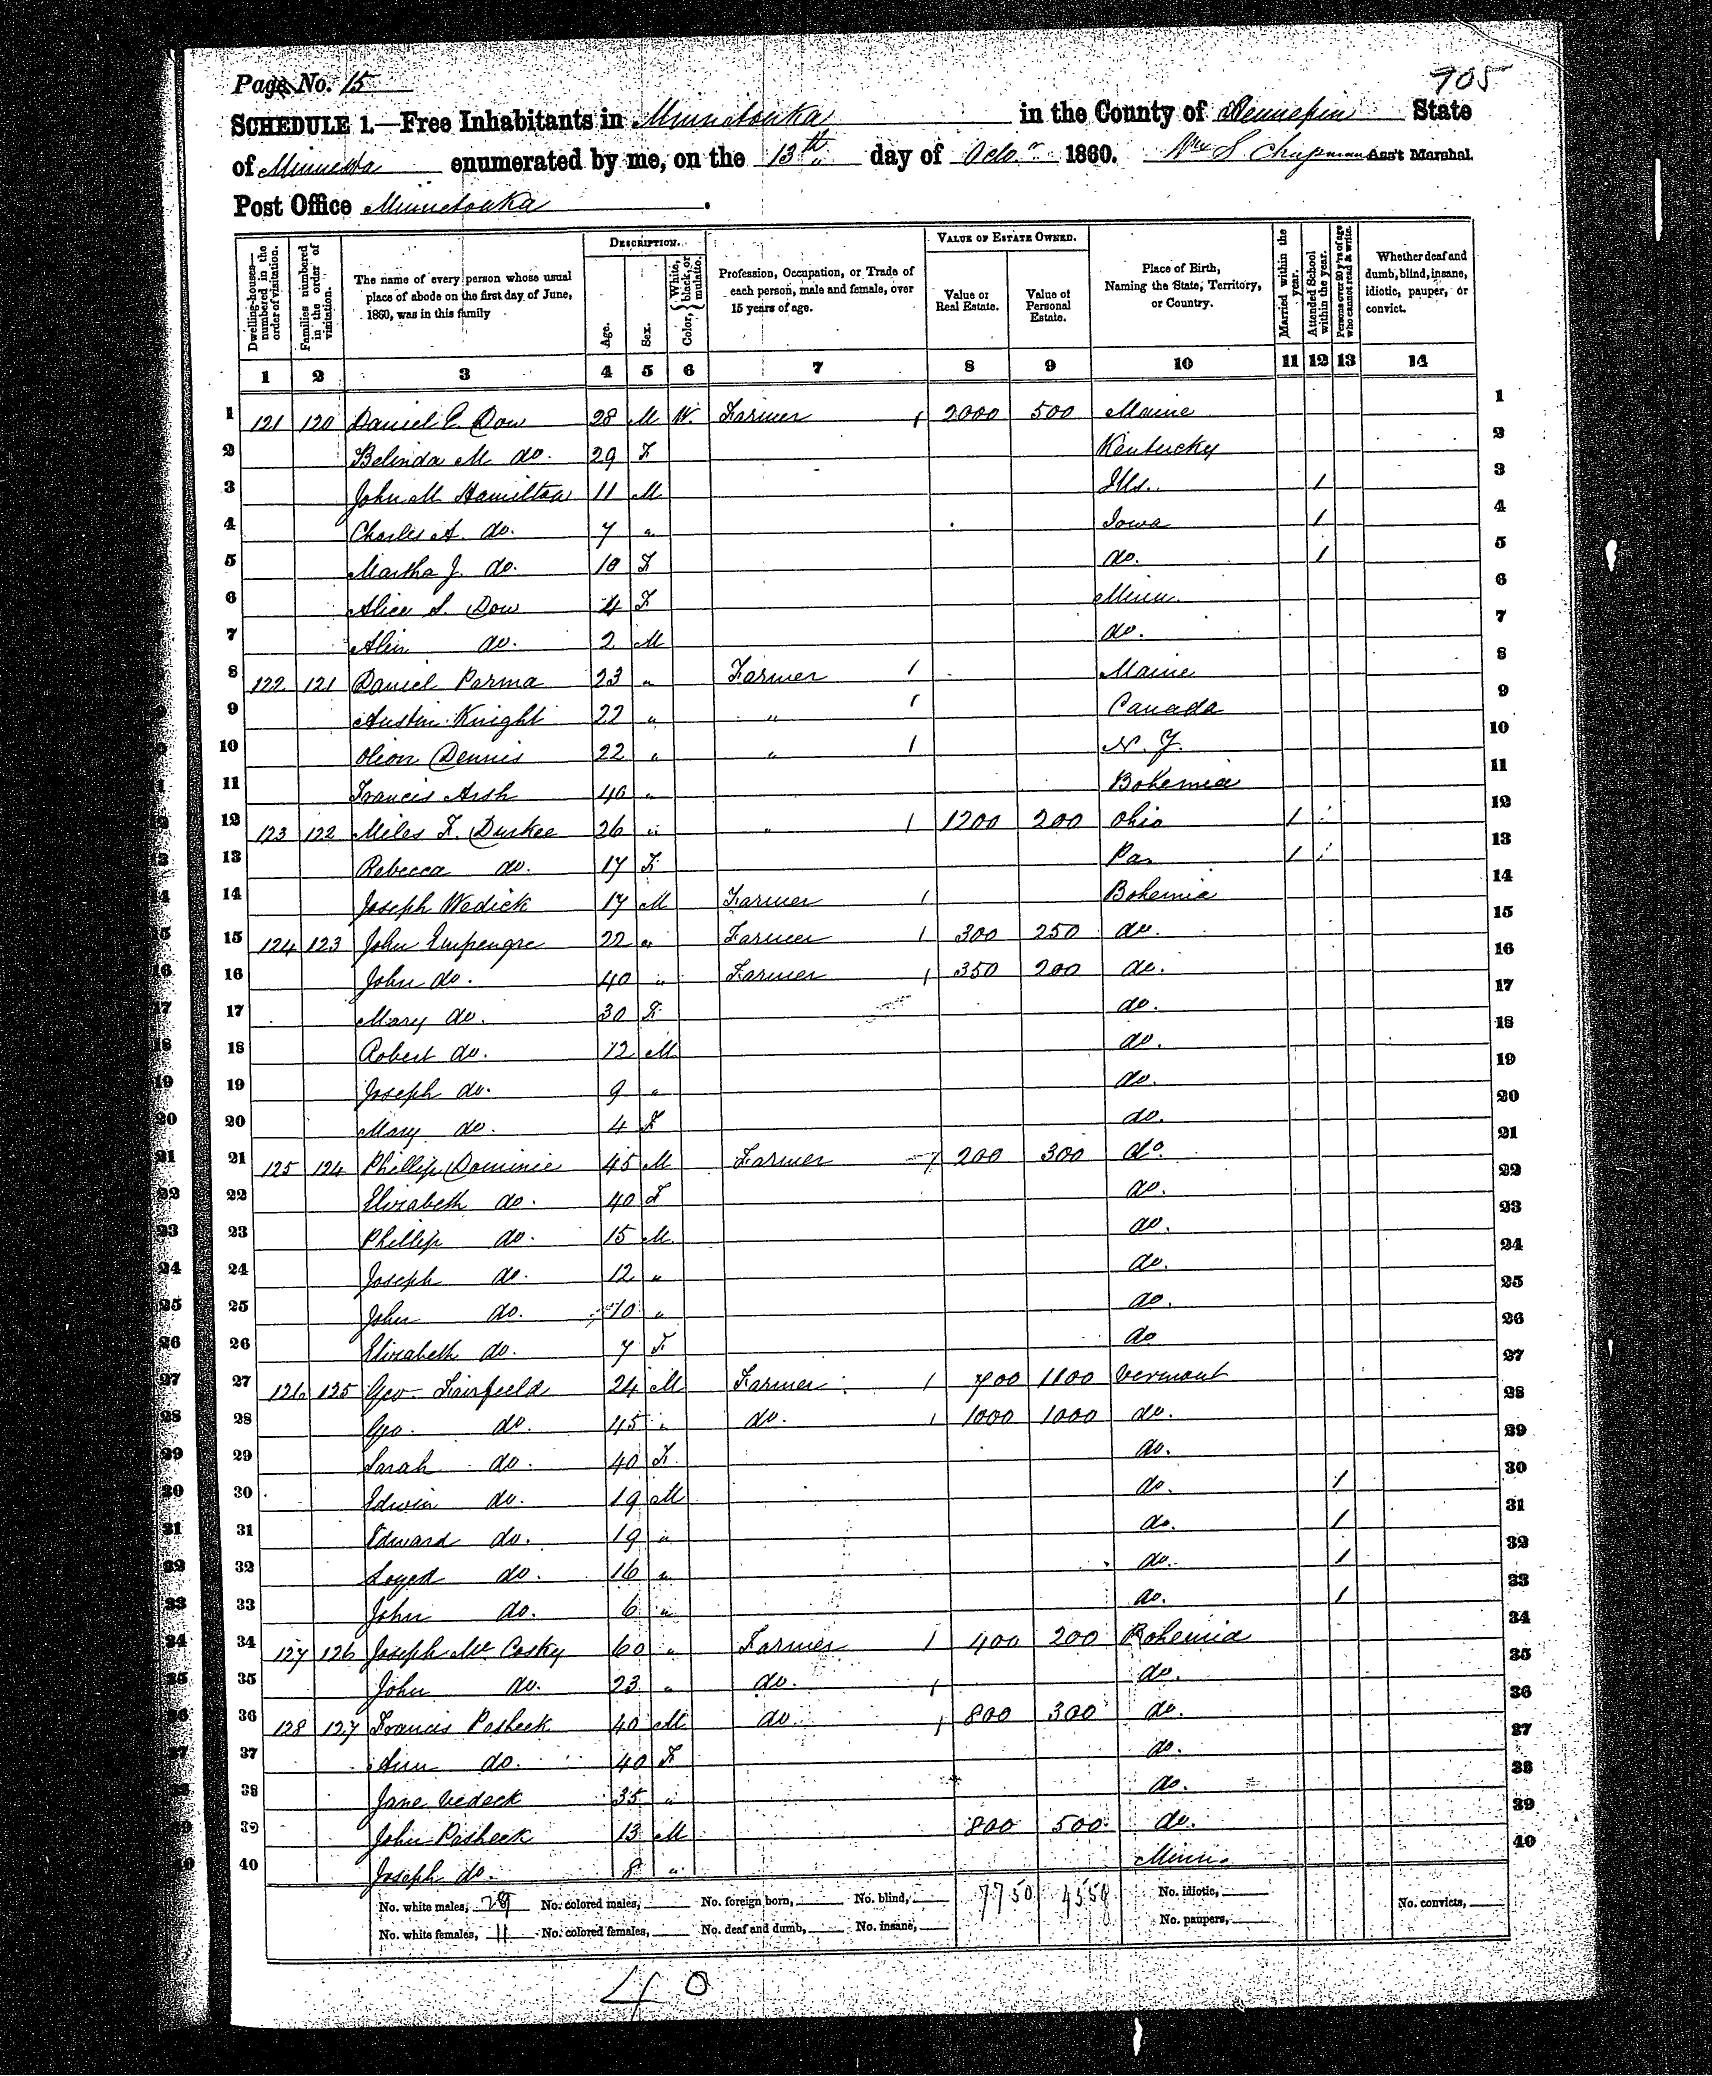 Page No. 15
705
SCHEDULE 1.—Free Inhabitants in Minnetonka in the County of Hennepin State
of Minnesota enumerated by me, on the 13th day of Octo. 1860. Wm S Chapman Ass't Marshal.
Post Office Minnetonka.
Dwelling-houses—numbered in the order of visitation.
Families numbered in the order of visitation.
The name of every person whose usual place of abode on the first day of June, 1860, was in this family
DESCRIPTION.
Age.
Sex.
Color, {White, black, or mulatto.
Profession, Occupation, or Trade of each person, male and female, over 15 years of age.
VALUE OF ESTATE OWNED.
Value of Real Estate.
Value of Personal Estate.
Place of Birth, Naming the State, Territory, or Country.
Married within the year.
Attended School within the year.
Persons over 20 y'rs of age who cannot read & write.
Whether deaf and dumb, blind, insane, idiotic, pauper, or convict.
1 2 3 4 5 6 7 8 9 10 11 12 13 14
1 121 120 Daniel E. Dow 28 M W. Farmer 1 2000 500 Maine 1
2 Belinda M do. 29 F Kentucky 2
3 John M Hamilton 11 M Ills. 1 3
4 Charles A. do. 7 " Iowa 1 4
5 Martha J. do. 10 F do. 1 5
6 Alice S. Dow 4 F Minn. 6
7 do. 2 M do. 7
8 122 121 Daniel Parma 23 " Farmer 1 Maine 8
9 Austin Knight 22 " " 1 Canada 9
10 Olion Dennis 22 " " 1 N. Y. 10
11 Francis Arsh 40 " Bohemia 11
12 123 122 Miles F. Durkee 26 " " 1 1200 200 Ohio 1 12
13 Rebecca do. 17 F Pa. 1 13
14 Joseph Wedick 17 M Farmer 1 Bohemia 14
15 124 123 John 22 " Farmer 1 300 250 do. 15
16 John do. 40 " Farmer 1 350 200 do. 16
17 Mary do. 30 F do. 17
18 Robert do. 12 M do. 18
19 Joseph do. 9 " do. 19
20 Mary do. 4 F do. 20
21 125 124 Phillip Dominie 45 M Farmer 1 200 300 do. 21
22 Elizabeth do. 40 F do. 22
23 Phillip do. 15 M do. 23
24 Joseph do. 12 " do. 24
25 John do. 10 " do. 25
26 Elizabeth do. 7 F do 26
27 126 125 Geo Fairfield 24 M Farmer 1 700 1100 Vermont 27
28 Geo. do. 45 " do. 1 1000 1000 do. 28
29 Sarah do. 40 F do. 29
30 Edwin do. 19 M do. 1 30
31 Edward do. 19 " do. 1 31
32 Loyed do. 16 " do. 1 32
33 John do. 6 " do. 1 33
34 127 126 Joseph Mc Cosky 60 " Farmer 1 400 200 Bohemia 34
35 John do. 23 " do. 1 do. 35
36 128 127 Francis Pesheck 40 M do. 1 800 300 do. 36
37 Ann do. 40 F do. 37
38 Jane Vedeck 35 " do. 38
39 John Pesheck 13 M 800 500 do. 39
40 Joseph do. 8 " Minn. 40
No. white males, 29 No. colored males, No. foreign born, No. blind, 7750 No. idiotic, No. convicts,
No. white females, 11 No. colored females, No. deaf and dumb, No. insane, No. paupers,
40